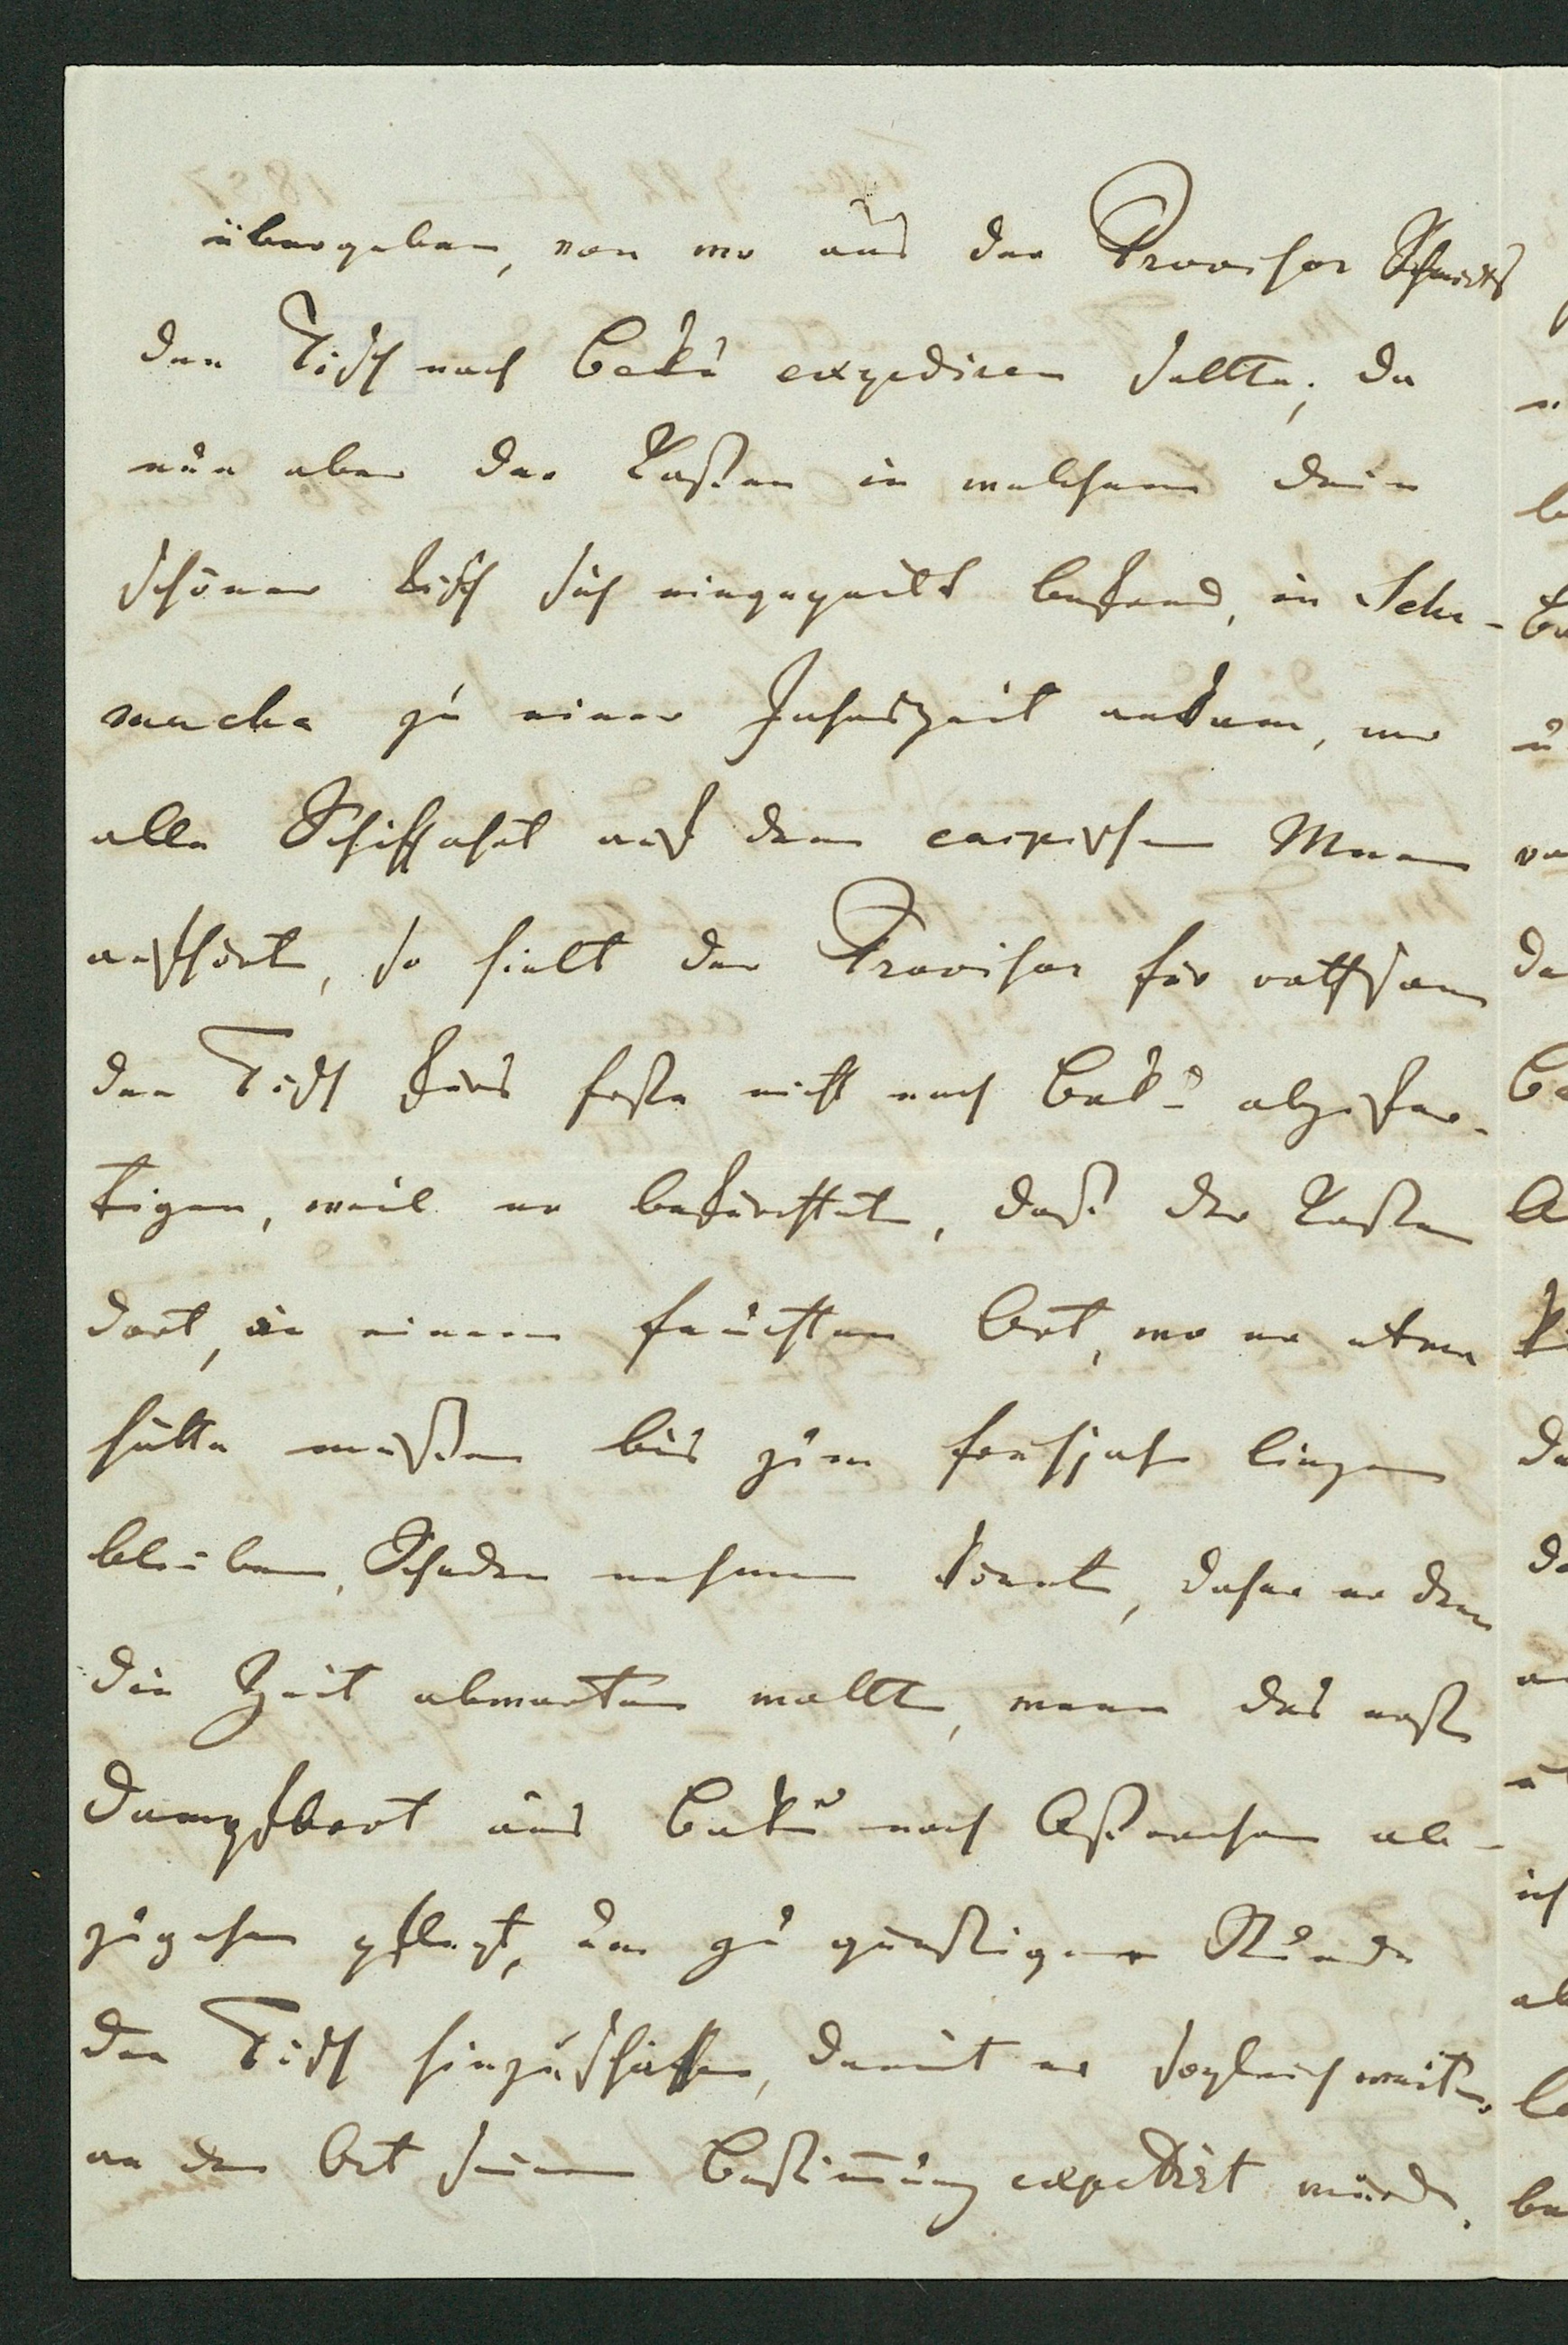 übergeben, von wo aus der Provisor Schmidt
den Tisch nach Baku expediren sollte; da
nun aber der Kasten in welchem dein
schöner Tisch sich eingepackt befand, in Sche-
macha zu einer Jahreszeit ankam, wo
alle Schiffahrt auf dem caspischen Meere
aufhört, so hielt der Provisor für rathsam
den Tisch fürs erste nicht nach Baku abzufer-
tigen, weil er befürchtete, daß der Kasten
dort, in einem feuchten Ort, wo er etwa
hätte müßen bis zum Frühjahr liegen
bleiben, Schaden nehmen könnte, daher er denn
die Zeit abwarten wollte, wenn das erste
Dampfboot aus Baku nach Astrachan ab-
zugehen pflegt, um zu günstigerer Stunde
den Tisch hinzuschaffen, damit er sogleich weiter
an den Ort seiner Bestimmung expedirt würde.